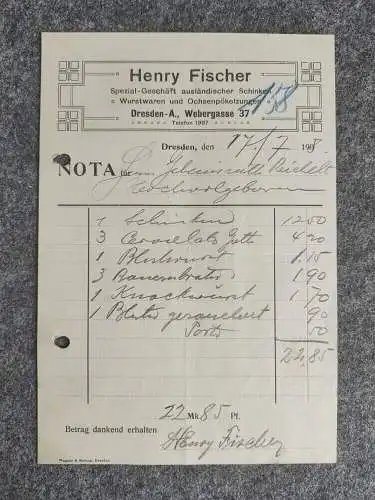 Henry Fischer
Spezial-Geschäft ausländischer Schinken
Wurstwaren und Ochsenpökelzungen
Dresden-A., Webergasse 37
Telefon 1987
158
Dresden, den 17./7. 1908
NOTA für Herrn Geheimrath Reichelt
Hochwolgeboren
1 Schinken 12 50
3 Cervelats 4 20
1 Blutwurst 1.15
3 1 90
1 Knackwurst 1 70
1 geräuchert 90
Porto 50
22,85
22 Mk. 85 Pf.
Betrag dankend erhalten
Henry Fischer